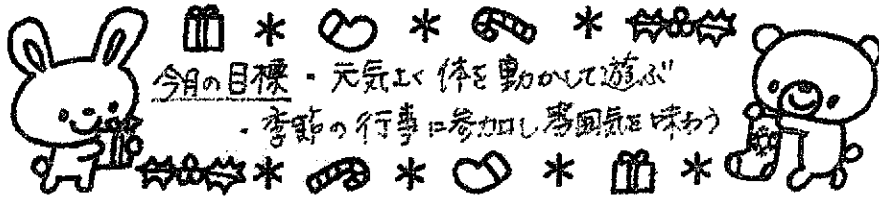 今月の目標・元気よく体を動かして遊ぶ
・季節の行事に参加し雰囲気を味わう